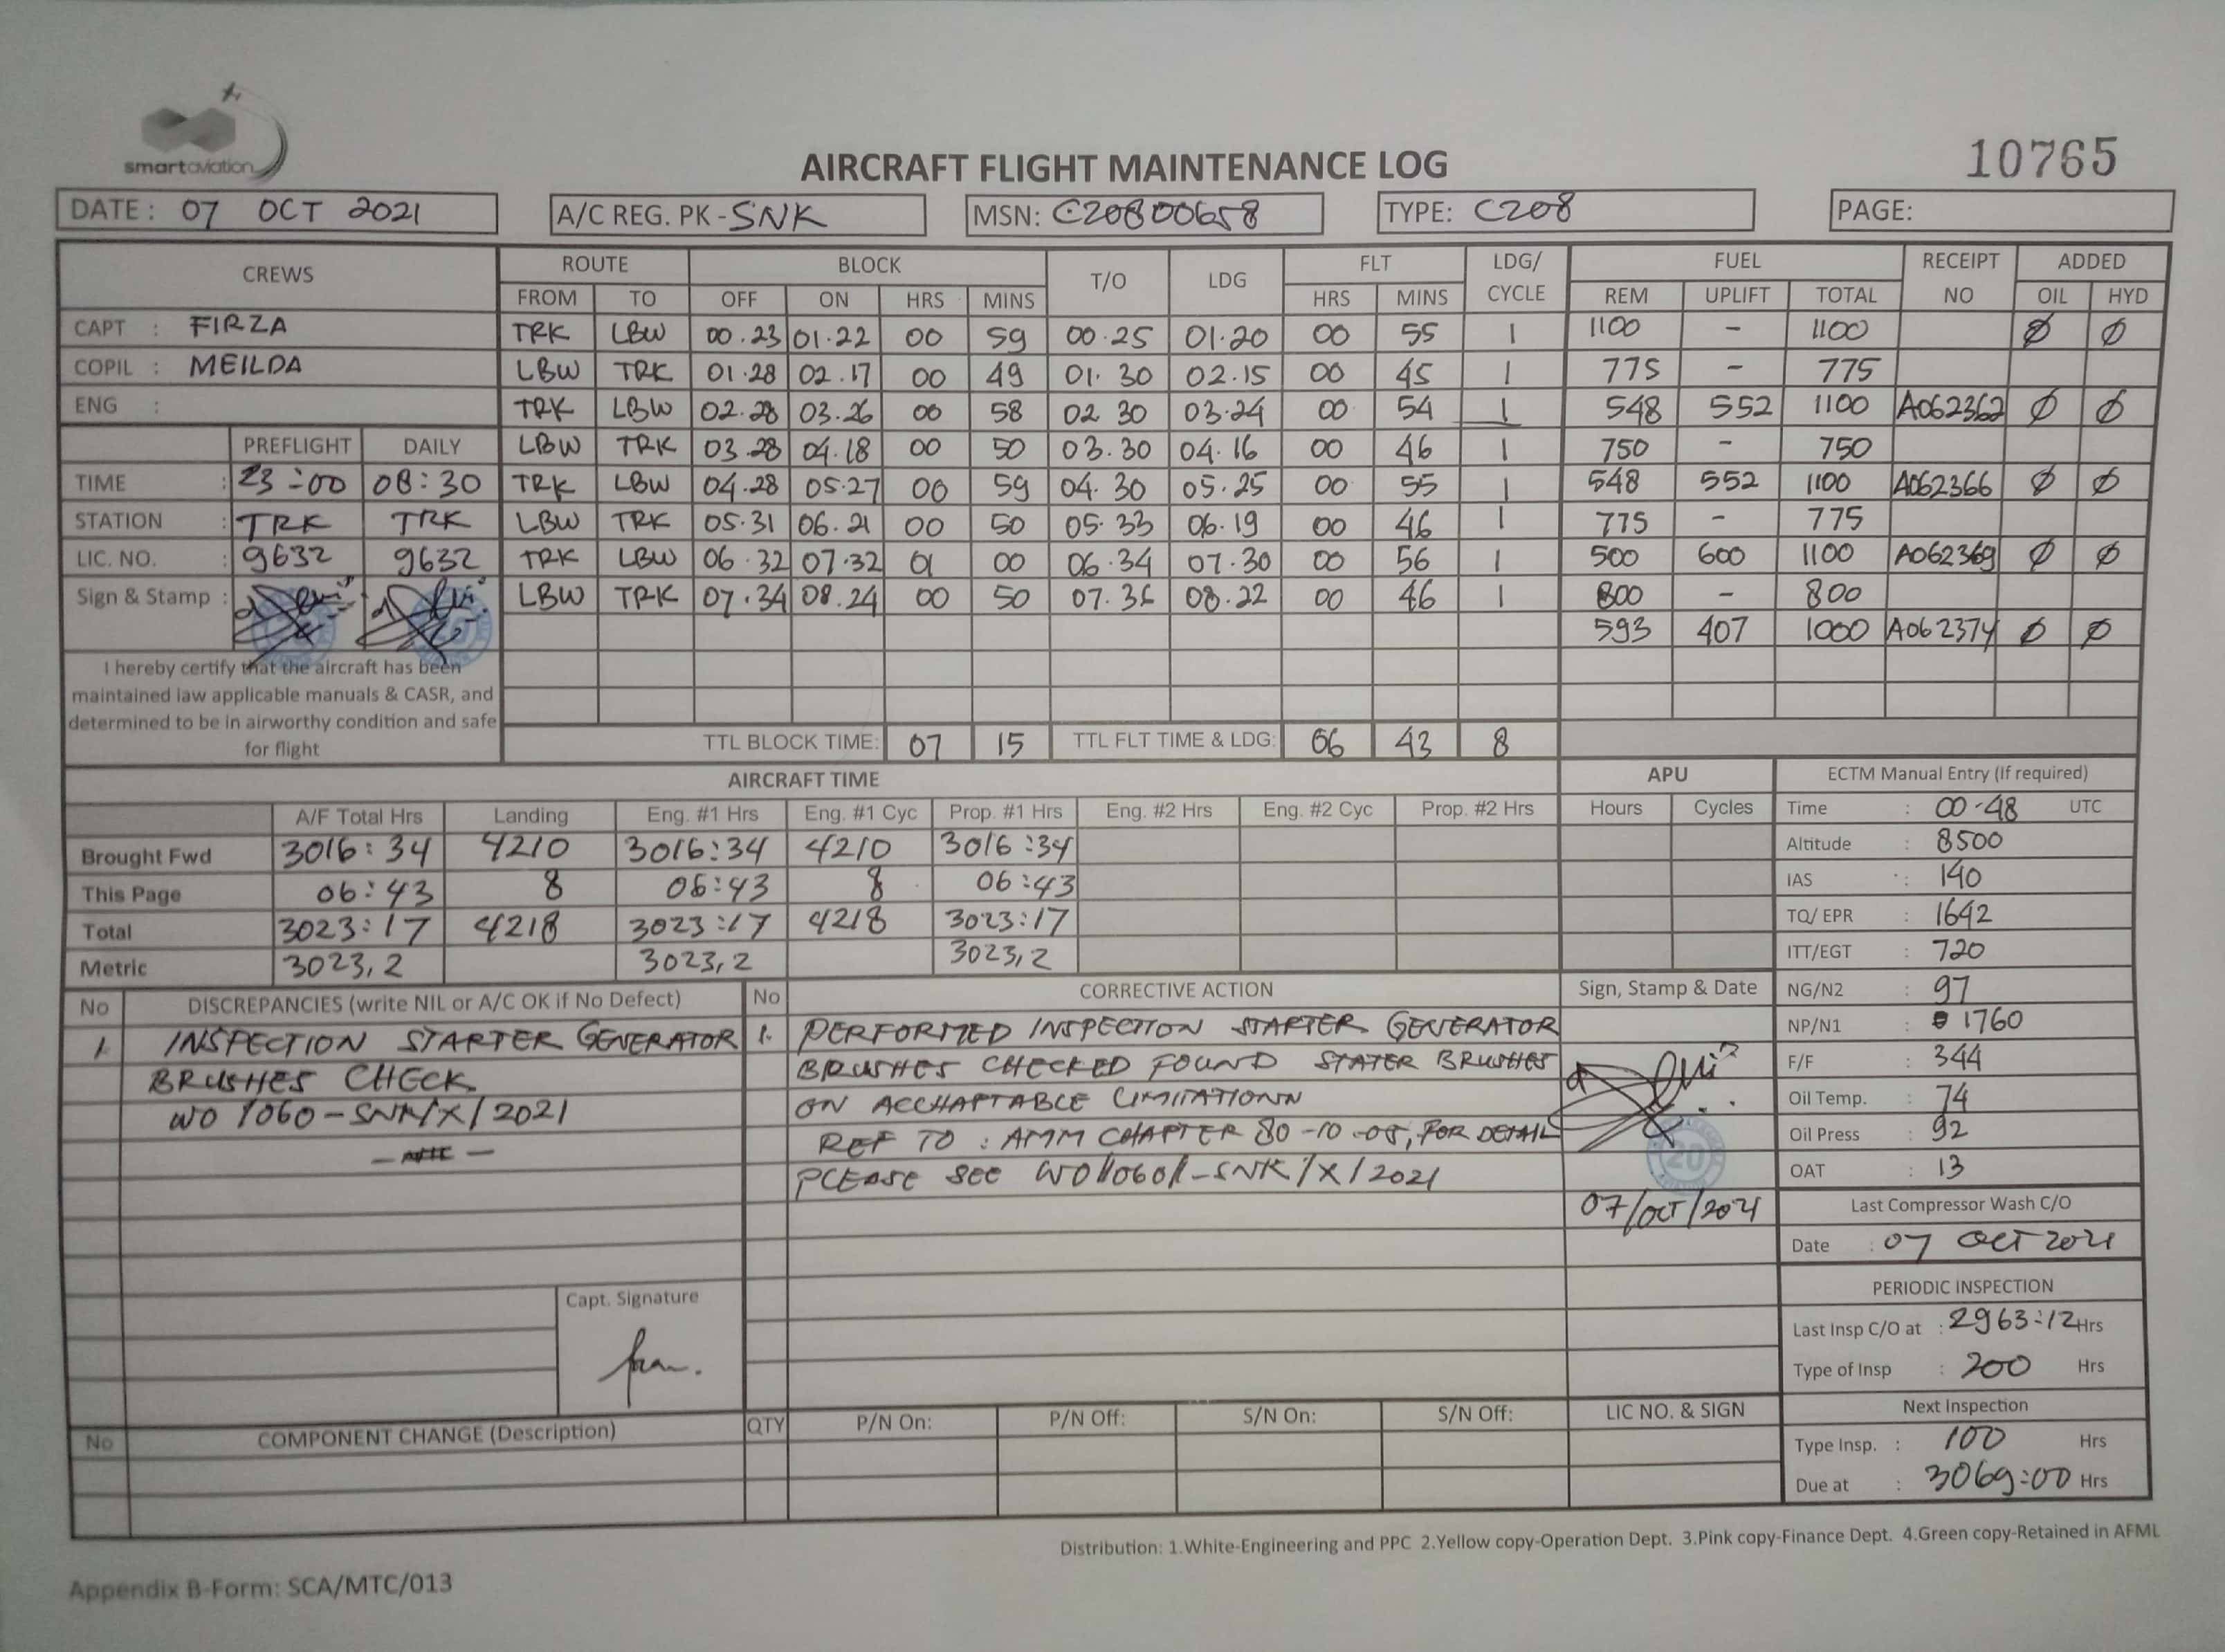 smartaviation
10765
AIRCRAFT FLIGHT MAINTENANCE LOG
DATE : 07 OCT 2021 A/C REG. PK - SNK MSN: C20800658 TYPE: C208 PAGE:
CREWS ROUTE BLOCK T/O LDG FLT LDG/ CYCLE FUEL RECEIPT NO ADDED
FROM TO OFF ON HRS MINS HRS MINS REM UPLIFT TOTAL OIL HYD
CAPT : FIRZA TRK LBW 00.23 01.22 00 59 00.25 01.20 00 55 1 1100 - 1100 Ø Ø
COPIL : MEILDA LBW TRK 01.28 02.17 00 49 01.30 02.15 00 45 1 775 - 775
ENG : TRK LBW 02.28 03.26 00 58 02 30 03.24 00 54 1 548 552 1100 A062362 Ø Ø
PREFLIGHT DAILY LBW TRK 03.28 04.18 00 50 03.30 04.16 00 46 1 750 - 750
TIME : 23:00 08:30 TRK LBW 04.28 05.27 00 59 04.30 05.25 00 55 1 548 552 1100 A062366 Ø Ø
STATION : TRK TRK LBW TRK 05.31 06.21 00 50 05.33 06.19 00 46 1 775 - 775
LIC. NO. : 9632 9632 TRK LBW 06.32 07.32 01 00 06.34 07.30 00 56 1 500 600 1100 A062369 Ø Ø
Sign & Stamp : LBW TRK 07.34 08.24 00 50 07.36 08.22 00 46 1 800 - 800
593 407 1000 A062374 Ø Ø
I hereby certify that the aircraft has been
maintained iaw applicable manuals & CASR, and
determined to be in airworthy condition and safe
for flight
TTL BLOCK TIME: 07 15 TTL FLT TIME & LDG: 06 43 8
AIRCRAFT TIME APU ECTM Manual Entry (If required)
A/F Total Hrs Landing Eng. #1 Hrs Eng. #1 Cyc Prop. #1 Hrs Eng. #2 Hrs Eng. #2 Cyc Prop. #2 Hrs Hours Cycles Time : 00-48 UTC
Brought Fwd 3016:34 4210 3016:34 4210 3016:34 Altitude : 8500
This Page 06:43 8 06:43 8 06:43 IAS : 140
Total 3023:17 4218 3023:17 4218 3023:17 TQ/ EPR : 1642
Metric 3023,2 3023,2 3023,2 ITT/EGT : 720
No DISCREPANCIES (write NIL or A/C OK if No Defect) No CORRECTIVE ACTION Sign, Stamp & Date NG/N2 : 97
1. INSPECTION STARTER GENERATOR 1. PERFORMED INSPECTION STARTER GENERATOR NP/N1 : 1760
BRUSHES CHECK BRUSHES CHECKED FOUND STATER BRUSHES F/F : 344
WO 1060-SNK/X/2021 ON ACCHAPTABLE LIMITATIONN Oil Temp. : 74
REF TO : AMM CHAPTER 80-10-05, FOR DETAIL Oil Press : 92
PLEASE SEE WO/1060/-SNK/X/2021 OAT : 13
07/OCT/2021 Last Compressor Wash C/O
Date : 07 OCT 2021
PERIODIC INSPECTION
Capt. Signature
Last Insp C/O at : 2963:12 Hrs
Type of Insp : 200 Hrs
No COMPONENT CHANGE (Description) QTY P/N On: P/N Off: S/N On: S/N Off: LIC NO. & SIGN Next Inspection
Type Insp. : 100 Hrs
Due at : 3069:00 Hrs
Distribution: 1.White-Engineering and PPC 2.Yellow copy-Operation Dept. 3.Pink copy-Finance Dept. 4.Green copy-Retained in AFML
Appendix B-Form: SCA/MTC/013